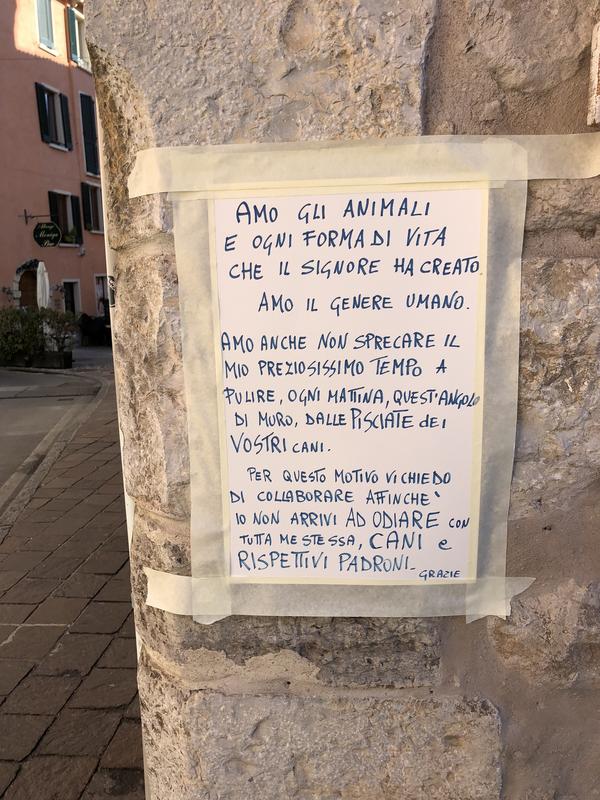 AMO GLI ANIMALI
E OGNI FORMA DI VITA
CHE IL SIGNORE HA CREATO.
AMO IL GENERE UMANO.
AMO ANCHE NON SPRECARE IL
MIO PREZIOSISSIMO TEMPO A
PULIRE, OGNI MATTINA, QUEST'ANGOLO
DI MURO, DALLE PISCIATE dei
VOSTRI CANI.
PER QUESTO MOTIVO VI CHIEDO
DI COLLABORARE AFFINCHE'
IO NON ARRIVI AD ODIARE CON
TUTTA ME STESSA, CANI e
RISPETTIVI PADRONI.
GRAZIE